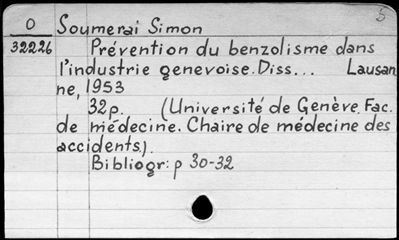 5
O Soumerai Simon
32226 Prévention du benzolisme dans
l'industrie genevoise. Diss... Lausan
ne, 1953
32p. (Université de Genève. Fac.
de médecine. Chaire de médecine des
accidents).
Bibliogr: p 30-32